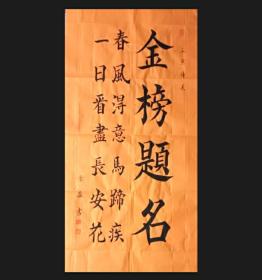 金榜題名
春風淂意馬蹄疾
一日看盡長安花
書